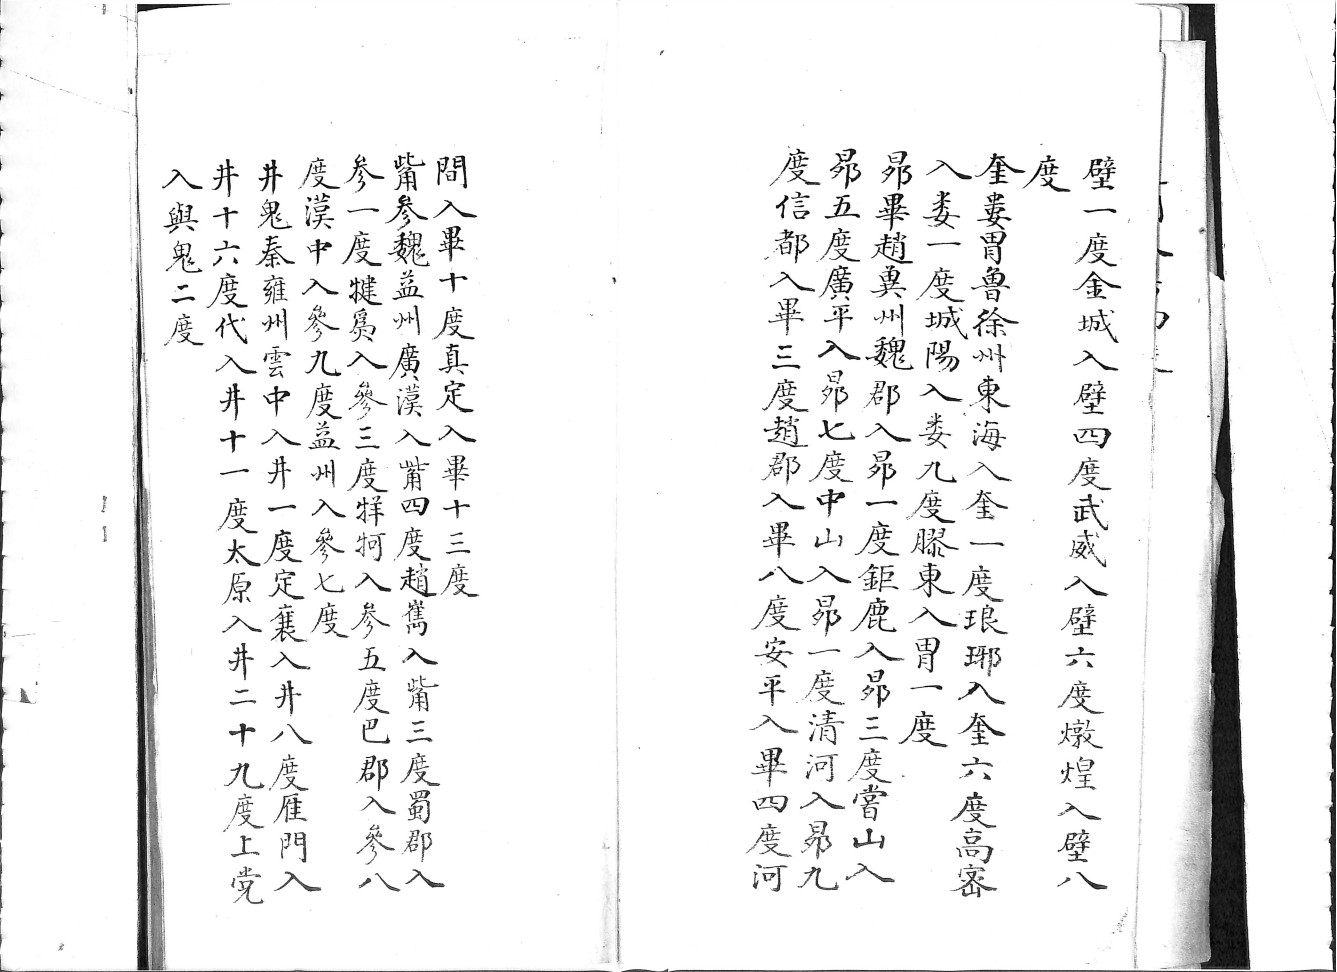 壁一度金城入壁四度武威入壁六度燉煌入壁八
度
奎婁胃魯徐州東海入奎一度琅琊入奎六度高密
入娄一度城陽入娄九度膠東入胃一度
昴畢趙冀州魏郡入昴一度鉅鹿入昴三度嘗山入
昴五度廣平入昴七度中山入昴一度清河入昴九
度信都入畢三度趙郡入畢八度安平入畢四度河
間入畢十度真定入畢十三度
觜參魏益州廣漢入觜四度趙嶲入觜三度蜀郡入
参一度犍為入參三度牂牁入参五度巴郡入參八
度漢中入參九度益州入參七度
井鬼秦雍州雲中入井一度定襄入井八度雁門入
井十六度代入井十一度太原入井二十九度上党
入與鬼二度